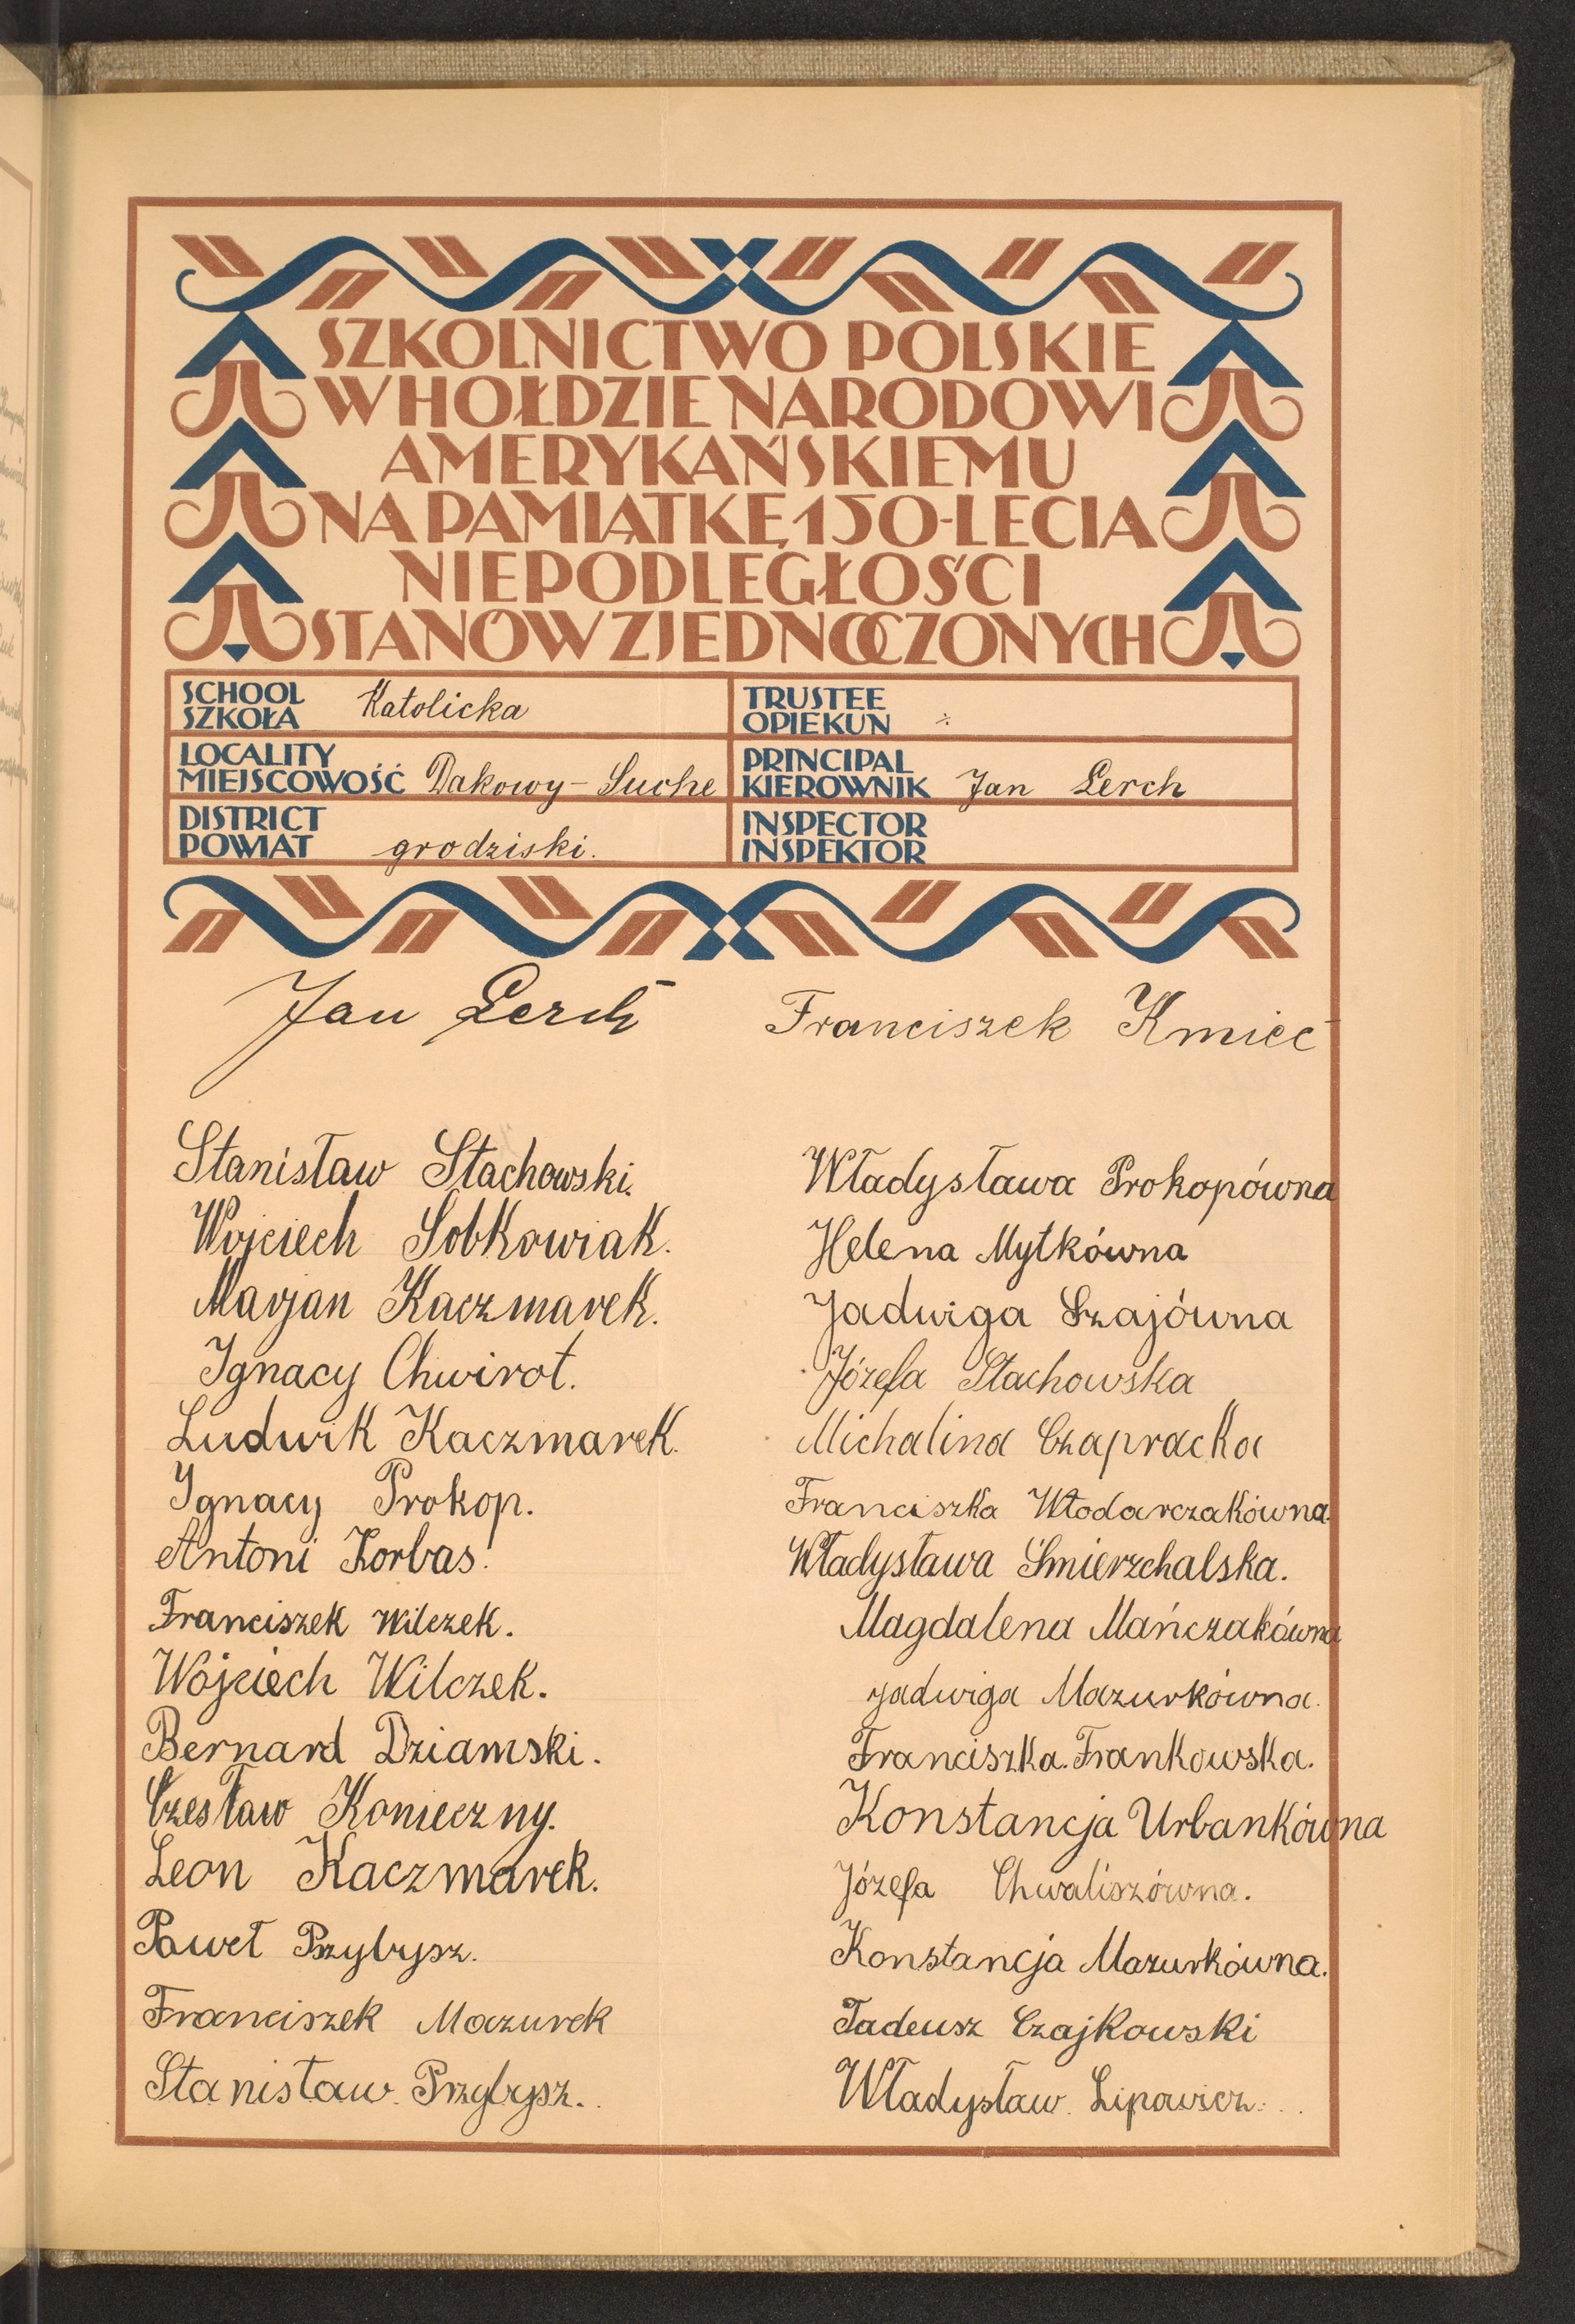 SZKOLNICTWO POLSKIE
W HOŁDZIE NARODOWI
AMERYKAŃSKIEMU
NA PAMIĄTKĘ 150-LECIA
NIEPODLEGŁOŚCI
STANÓW ZJEDNOCZONYCH
SCHOOL
SZKOŁA Katolicka
TRUSTEE
OPIEKUN ÷
LOCALITY
MIEJSCOWOŚĆ Dakowy-Suche
PRINCIPAL
KIEROWNIK Jan Lerch
DISTRICT
POWIAT grodziski.
INSPECTOR
INSPEKTOR
Jan Lerch
Franciszek Kmieć
Stanisław Stachowski.
Wojciech Sobkowiak.
Marjan Kaczmarek.
Ignacy Chwirot.
Ludwik Kaczmarek.
Ignacy Prokop.
Antoni Korbas.
Franciszek Wilczek.
Wojciech Wilczek.
Bernard Dziamski.
Czesław Konieczny.
Leon Kaczmarek.
Paweł Przybysz.
Franciszek Mazurek
Stanisław Przybysz.
Władysława Prokopówna
Helena Mytkówna
Jadwiga Szajówna
Józefa Stachowska
Michalina Czapracka
Franciszka Włodarczakówna.
Władysława Śmierzchalska.
Magdalena Mańczakówna
Jadwiga Mazurkówna.
Franciszka. Frankowska.
Konstancja Urbankówna
Józefa Chwaliszówna.
Konstancja Mazurkówna.
Tadeusz Czajkowski
Władysław Lipowicz.